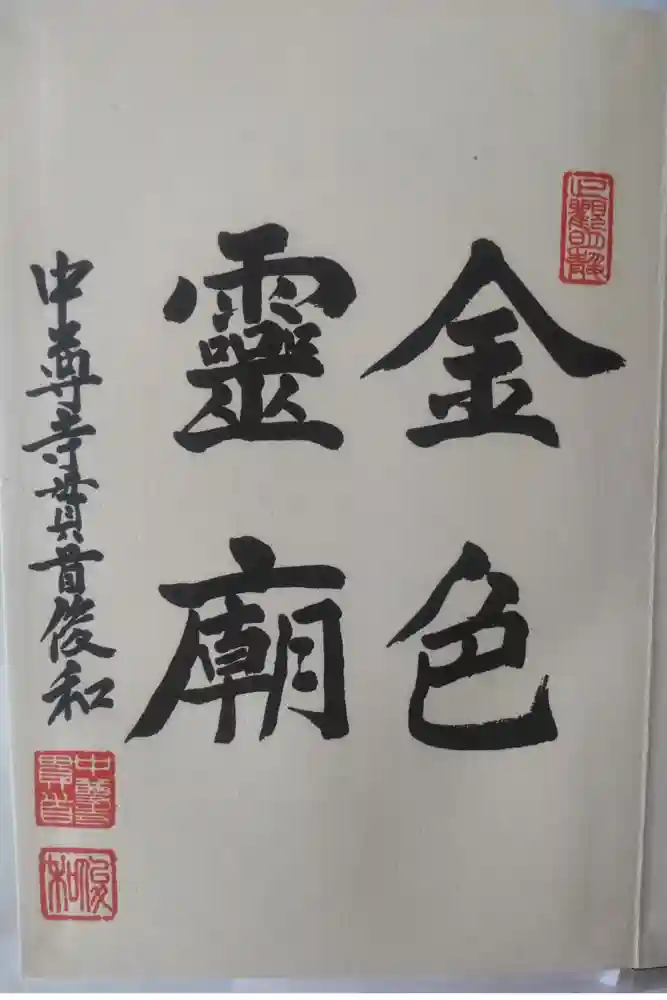 止觀明靜
金色
靈廟
中尊寺貫首俊和
中尊寺
貫首
俊和